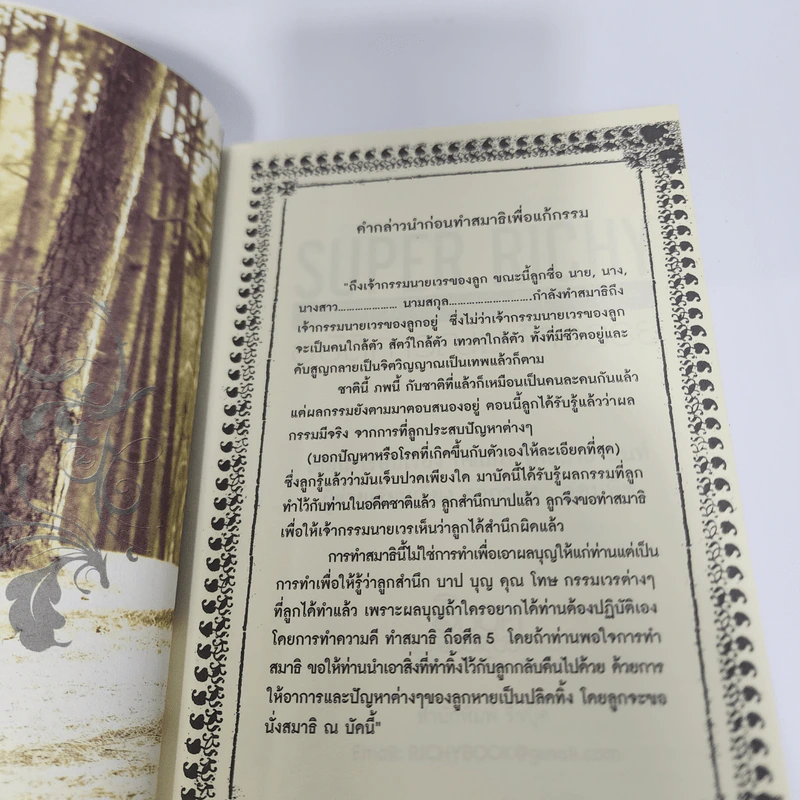 คำกล่าวนำก่อนทำสมาธิเพื่อแก้กรรม
"ถึงเจ้ากรรมนายเวรของลูก ขณะนี้ลูกชื่อ นาย, นาง,
นางสาว.................... นามสกุล............................กำลังทำสมาธิถึง
เจ้ากรรมนายเวรของลูกอยู่ ซึ่งไม่ว่าเจ้ากรรมนายเวรของลูก
จะเป็นคนใกล้ตัว สัตว์ใกล้ตัว เทวดาใกล้ตัว ทั้งที่มีชีวิตอยู่และ
ดับสูญกลายเป็นจิตวิญญาณเป็นเทพแล้วก็ตาม
ชาตินี้ ภพนี้ กับชาติที่แล้วก็เหมือนเป็นคนละคนกันแล้ว
แต่ผลกรรมยังตามมาตอบสนองอยู่ ตอนนี้ลูกได้รับรู้แล้วว่าผล
กรรมมีจริง จากการที่ลูกประสบปัญหาต่างๆ
(บอกปัญหาหรือโรคที่เกิดขึ้นกับตัวเองให้ละเอียดที่สุด)
ซึ่งลูกรู้แล้วว่ามันเจ็บปวดเพียงใด มาบัดนี้ได้รับรู้ผลกรรมที่ลูก
ทำไว้กับท่านในอดีตชาติแล้ว ลูกสำนึกบาปแล้ว ลูกจึงขอทำสมาธิ
เพื่อให้เจ้ากรรมนายเวรเห็นว่าลูกได้สำนึกผิดแล้ว
การทำสมาธินี้ไม่ใช่การทำเพื่อเอาผลบุญให้แก่ท่านแต่เป็น
การทำเพื่อให้รู้ว่าลูกสำนึก บาป บุญ คุณ โทษ กรรมเวรต่างๆ
ที่ลูกได้ทำแล้ว เพราะผลบุญถ้าใครอยากได้ท่านต้องปฏิบัติเอง
โดยการทำความดี ทำสมาธิ ถือศีล 5 โดยถ้าท่านพอใจการทำ
สมาธิ ขอให้ท่านนำเอาสิ่งที่ทำทิ้งไว้กับลูกกลับคืนไปด้วย ด้วยการ
ให้อาการและปัญหาต่างๆของลูกหายเป็นปลิดทิ้ง โดยลูกจะขอ
นั่งสมาธิ ณ บัดนี้"